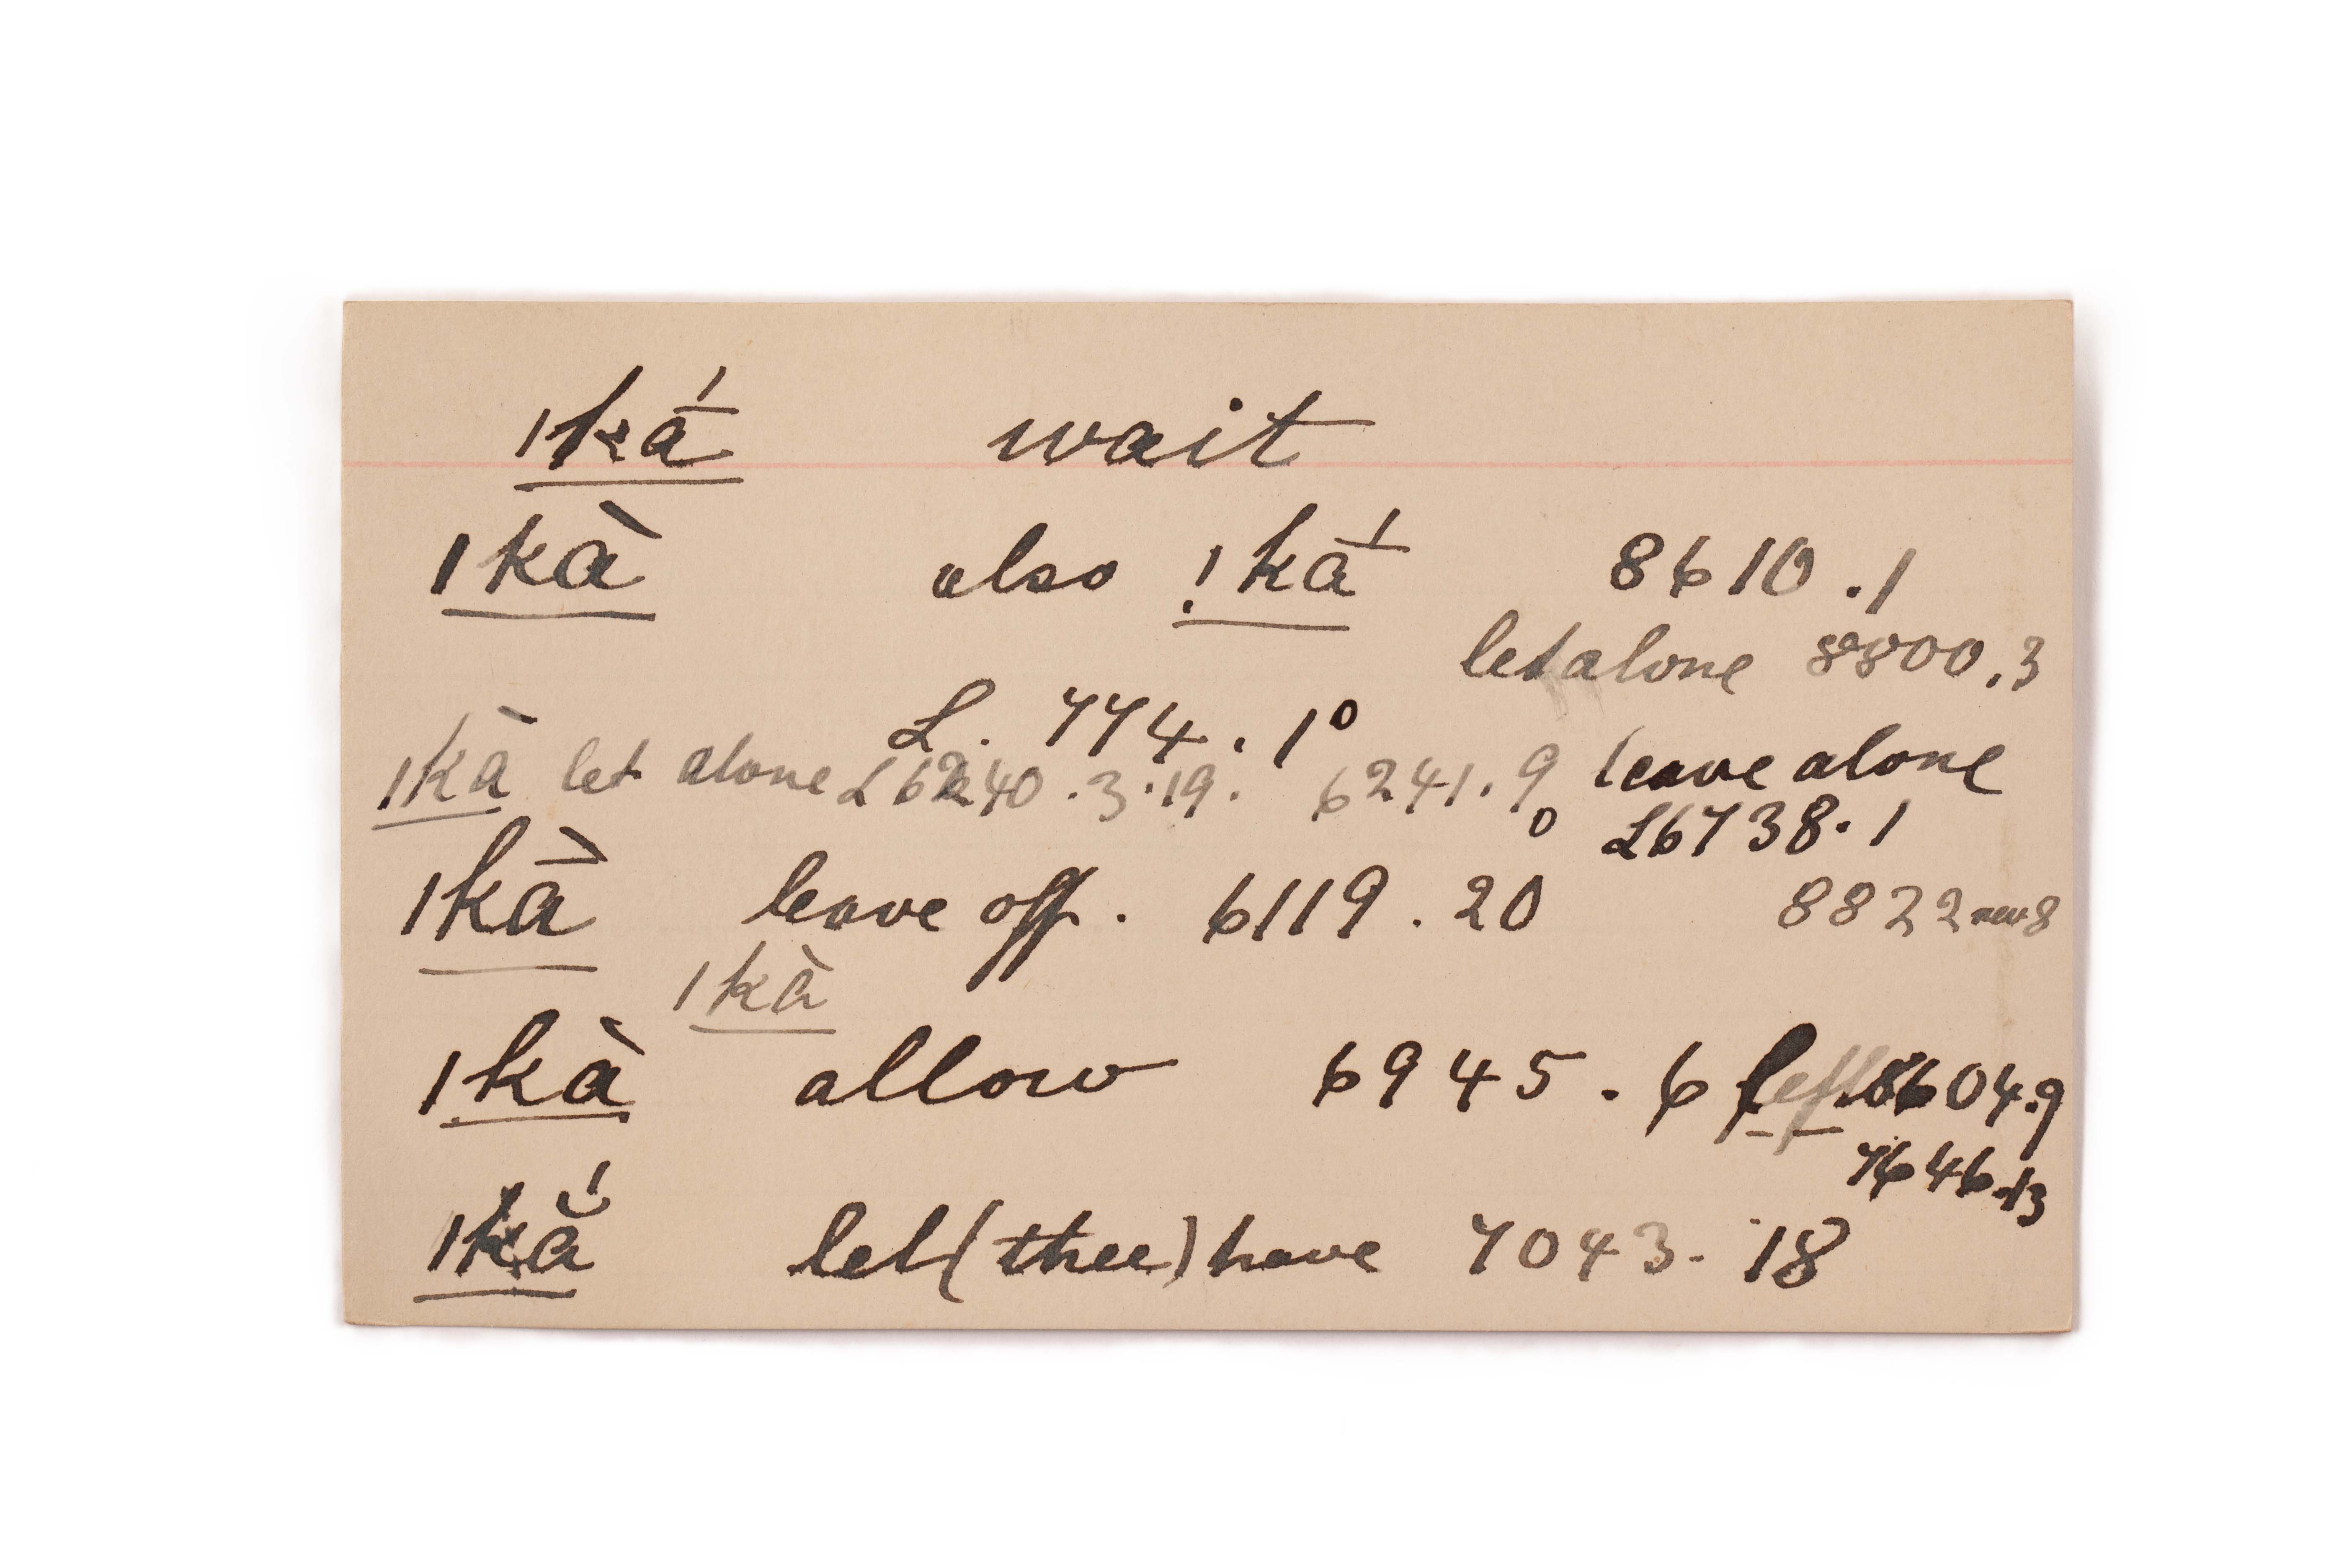 ǀkā́ wait
ǀkà also !kā́ 8610.1
let alone 8800.3
L. 774.10
ǀkà let alone L6240.3.19. 6241.9 leave alone
L6738.1
ǀkā̀ leave off. 6119.20 8822 rev 8
ǀkà
ǀkà allow 6945.6 left 8604.9
7646.13
ǀkắ let (thee) have 7043.18